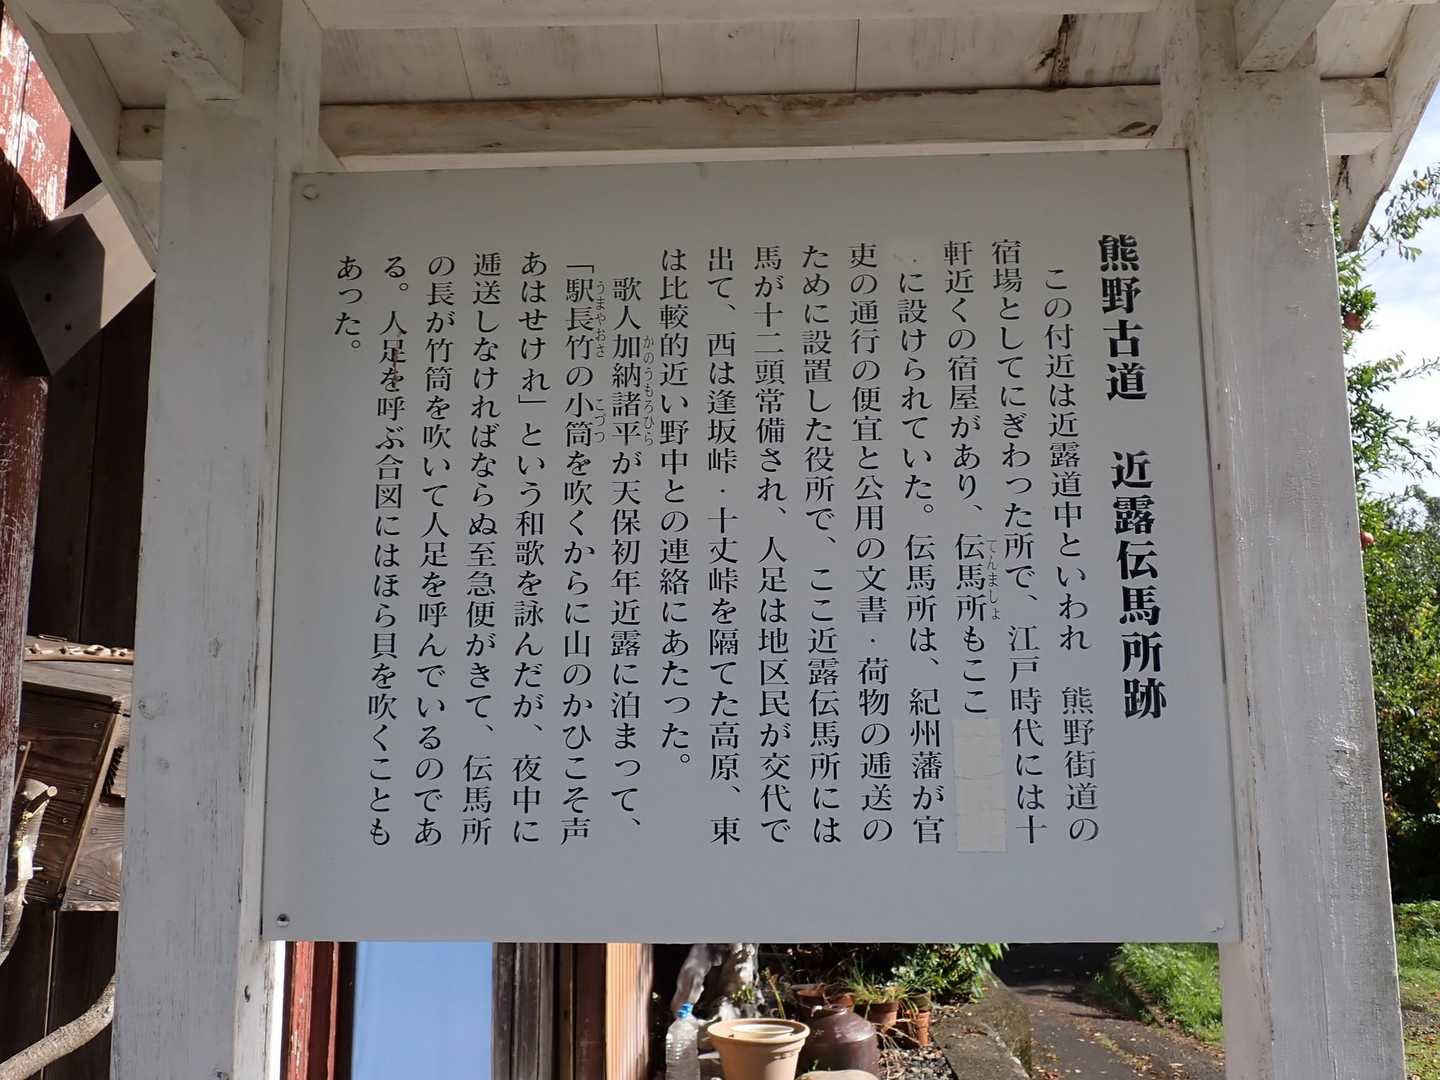 熊野古道　近露伝馬所跡
この付近は近露道中といわれ　熊野街道の
宿場としてにぎわった所で、江戸時代には十
軒近くの宿屋があり、伝馬所もここ
に設けられていた。伝馬所は、紀州藩が官
吏の通行の便宜と公用の文書・荷物の逓送の
ために設置した役所で、ここ近露伝馬所には
馬が十二頭常備され、人足は地区民が交代で
出て、西は逢坂峠・十丈峠を隔てた高原、東
は比較的近い野中との連絡にあたった。
歌人加納諸平が天保初年近露に泊まって、
「駅長竹の小筒を吹くからに山のかひこそ声
あはせけれ」という和歌を詠んだが、夜中に
逓送しなければならぬ至急便がきて、伝馬所
の長が竹筒を吹いて人足を呼んでいるのであ
る。人足を呼ぶ合図にはほら貝を吹くことも
あった。
てんましょ
かのうもろひら
うまやおさ
こづつ